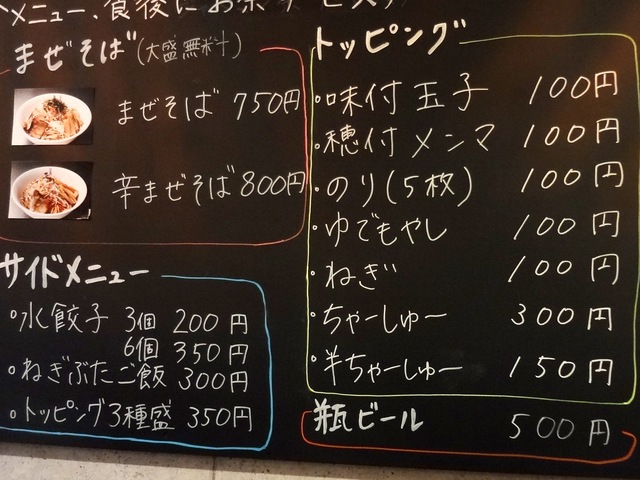 メニュー、食後にお茶
まぜそば(大盛無料)
まぜそば 750円
辛まぜそば 800円
サイドメニュー
・水餃子 3個 200円
6個 350円
・ねぎぶたご飯 300円
・トッピング3種盛 350円
トッピング
・味付玉子 100円
・穂付メンマ 100円
・のり(5枚) 100円
・ゆでもやし 100円
・ねぎ 100円
・ちゃーしゅー 300円
・半ちゃーしゅー 150円
瓶ビール 500円